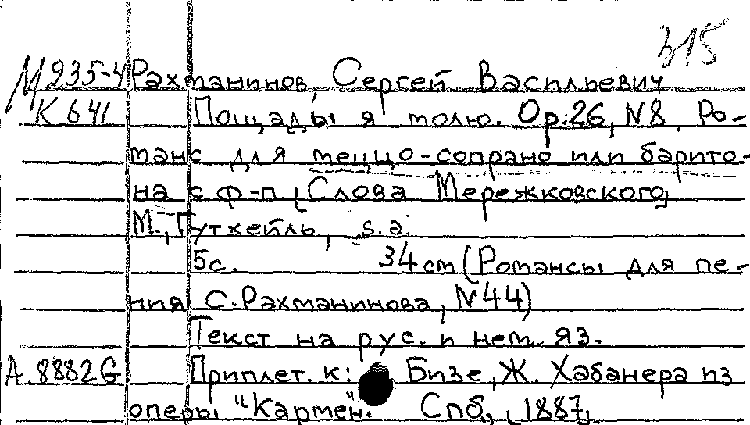 315
М 935-4 Рахманинов, Сергей Васильевич
К 641 Пощады я молю. Op.26, N8. Ро-
манс для меццо-сопрано или барито-
на с ф-п. [Слова Мережковского]
М., Гутхейль, s.a.
5с. 34cm (Романсы для пе-
ния С. Рахманинова, N44)
Текст на рус. и нем. яз.
A.8882G Приплет. к: Бизе, Ж. Хабанера из
оперы "Кармен". Спб., [1887]